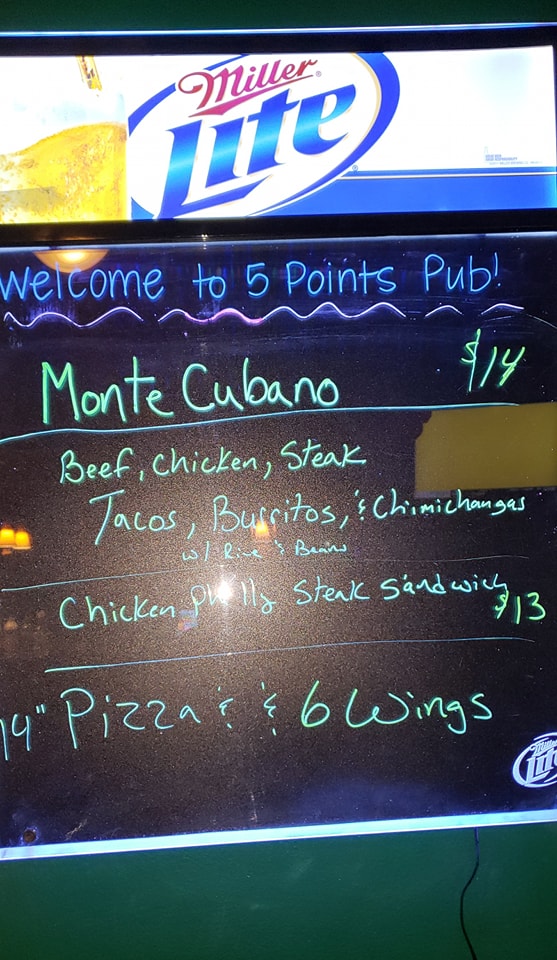 Miller
Lite
Welcome to 5 Points Pub!
Monte Cubano $14
Beef, Chicken, Steak
Tacos, Burritos, & Chimichangas
w/ Rice & Beans
Chicken Philly Steak Sandwich $13
14" Pizza & & 6 Wings
Miller
Lite